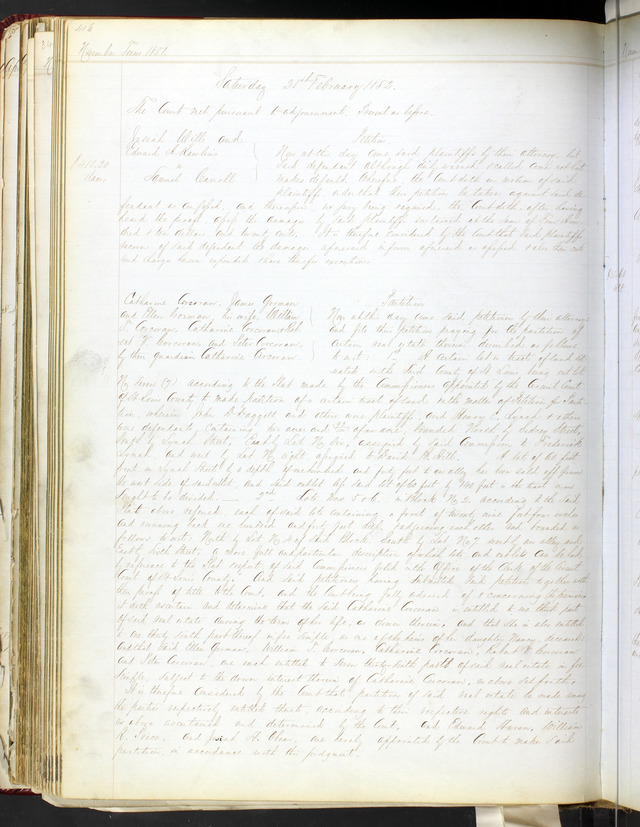 November Term 1851.
Saturday 21st February 1852.
The Court met pursuant to adjournment. Present as before.
Josiah Mills and
Edward
Samuel Carroll
Petition
Now at this day come said plaintiffs by their attorney, but
said defendant although duly called comes not but
makes default. Wherefore the Court doth on motion of said
plaintiffs order that their petition be taken against said de-
fendant as confessed, and thereupon no jury being required, the Court doth after having
heard the proof assess the damages by said plaintiffs sustained at the sum of
and dollars and twenty cents. It is therefore considered by the Court that said plaintiffs
recover of said defendant the damages aforesaid in form aforesaid so assessed & also their costs
and charges herein expended & have therefor execution.
Catharine Corcoran, James Gorman
and Ellen Gorman, his wife, William
Corcoran, Catharine Corcoran & Rob-
ert W. Corcoran and Peter Corcoran,
by their guardian Catharine Corcoran.
Partition
Now at this day come said petitioners by their attorney
and file their petition praying for the partition of
certain real estate therein described as follows
to wit: 1st A certain lot or tract of land sit-
uated in the said County of St Louis being out lot
No Seven (7) according to the Plat made by the Commissioners appointed by the Circuit Court
of St Louis County to make Partition of a certain tract of land in the matter of Petition for Parti-
tion, wherein John D. Daggett and others were plaintiffs, and Henry C. Lynch & others
were defendants, containing acres and of an acre, bounded North by Sidney Street,
South by Lynch Street, East by Lot No Six, assigned by said Commissioners to
Lynch and west by Lot No eight assigned to David B. Hill. A lot of 60 feet
front on Lynch Street by a depth of one hundred and fifty feet to an alley has been sold off from
the west side of said outlot, and said outlot less said lot of 60 feet by 150 feet is the tract now
sought to be divided. 2nd Lots Nos 5 & 6 in Block No 2. according to the said
Plat above referred, each of said lots containing a front of twenty nine feet
and running back one hundred and feet and bounded as
follows to wit: North by Lot No 4 of said Block South by Lot No 7 west by an alley and
East by sixth Street. A more full and particular description of which lots and outlots can be had
by reference to the Plat report of said Commissioners filed in the Office of the Clerk of the Circuit
Court of St Louis County. And said petitioners having submitted said petition together with
the proof of title to the Court, and the Court being fully advised of & concerning the premises
it doth ascertain and determine that the said Catharine Corcoran is entitled to one third part
of said real estate during the term of her life, as dower therein, and that she is also entitled
to one thirty sixth part thereof in fee simple, as one of the heirs of her daughter Nancy, deceased
And that said Ellen Gorman, William Corcoran, Catharine Corcoran, Robert W. Corcoran
and Peter Corcoran, are each entitled to seven thirty sixth parts of said real estate in fee
simple, subject to the dower interest therein of Catharine Corcoran, as above set forth.
It is therefore considered by the Court that partition of said real estate be made among
the parties respectively entitled thereto according to their respective rights and interests
as above ascertained and determined by the Court. And Edward Haren, William
and Josiah H. Obear, are hereby appointed by the Court to make said
partition, in accordance with this judgment.